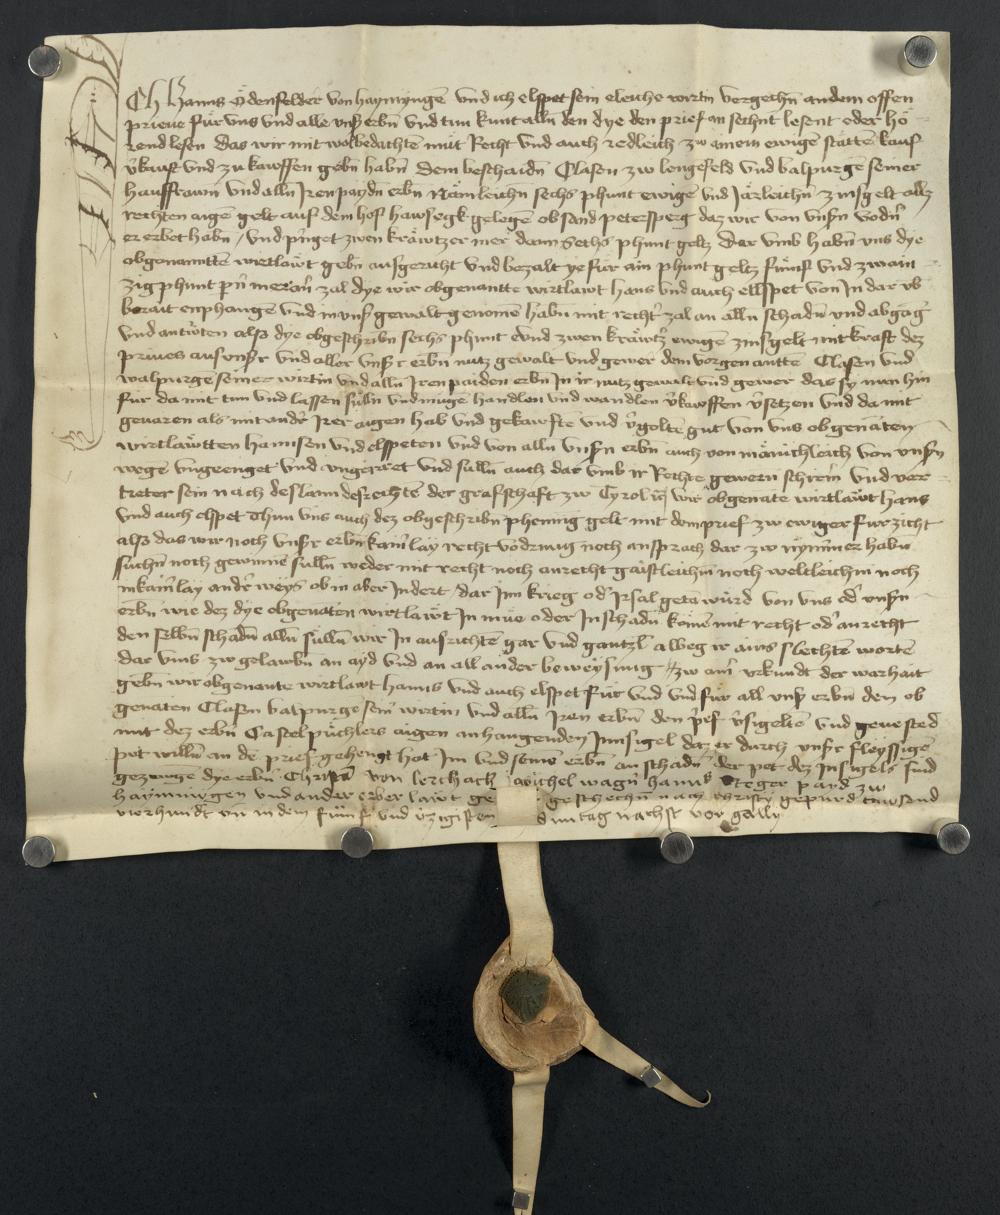 ICh Hanns Ödenfelder von haymyngen vnd ich elspet sein eleiche wirtin vergechn̄ an dem offen
prieue für vns vnd alle vnß erbn̄ vnd tun kunt alln̄ den dye den prief an sechnt lesent oder hö
rend lesen das wir mit wolbedachtē müt Recht vnd auch redleich zw ainem ewigē stättē kauf
v̄kauft vnd zu kawffen gebn̄ habn̄ dem beschaidn̄ Clasen zw lengefeld vnd balpurgē seiner
hausfrawn̄ vnd alln̄ Iren paydn̄ erbn̄ Nämleichn̄ sechs phunt ewigē vnd Järleichn̄ zinsgelt allz
rechten aigē gelt auf dem hof hawsegk gelegē ob sand petersperg daz wir von vnsn̄ vodn̄
er erbet habn̄ / vnd pringet zwen kräwtzer mer dann sechs phunt geltz Dar vmb habn̄ vns dye
obgenanttē wirtläwt gebn̄ ausgericht vnd bezalt ye für ain phunt geltz fünf vnd zwain
zig phunt pn̄ meran̄ zal dye wir obgenantte wirtlawt hans vnd auch ellspet von In dar vb
berait enphangē vnd in vnß gewalt genomē habn̄ mit rechtr̄ zal an alln̄ schadn̄ vnd abgāg
vnd antwten also dye obgeschribn̄ sechs phunt vnd zwen kräwtzr̄ ewigē zinsgelt mit kraft dez
prieues aus vnsr̄ vnd aller vnsr̄ erbn̄ nutz gewalt vnd gewer dem vorgenanttē Clasen vnd
walpurgē seiner wirtin vnd alln̄ Iren paiden erbn̄ In ir nutz gewalt vnd gewer das sy nun hin
für da mit tun vnd lassen sulln̄ vnd mügē handlen vnd wandlen v̄kawffen v̄setzen vnd da mit
geuaren als mit andr̄ Irer aigen hab vnd gekawftē vnd v̄goltē gut von vns obgenātē
wirtläwtten hannsen vnd elspeten vnd von alln̄ vnsn̄ erbn̄ auch von mänichleich von vnsn̄
wegē vngeenget vnd vngeirret vnd sulln̄ auch dar vmb ir Rechte gewern schrem̄ vnd ver
treter sein nach des lanndesrechtē der grafschaft zw Tyrol wir obgenāte wirtläwt hans
vnd auch elspet thun vns auch dez obgeschribn̄ phennig gelt mit dem prief zw ewiger fürzicht
also das wir noch vnsr̄ erbn̄ kain̄lay recht vodrung noch ansprach dar zw nymmer habn̄
suchn̄ noch gewinnē sulln̄ weder mit recht noch anrecht gaistleichn̄ noch weltleichn̄ noch
in kain̄lay andr̄ weys ob in aber Indert / dar Inn krieg odr̄ Irsal getā würd von vns odr̄ vnsn̄
erbn̄ wie dez dye obgenāten wirtläwt In müe oder In schadn̄ kömē mit recht odr̄ an recht
den selbn̄ schadn̄ alln̄ sulln̄ wir In ausrichtē gar vnd gantzl̄ albeg ir ains slechtē wortē
dar vmb zw gelawbn̄ an ayd vnd an all ander beweysung // zw ain̄ vrkundt der warhait
gebn̄ wir obgenante wirtlawt hanns vnd auch elspet für vnd vnd für all vnß erbn̄ dem ob
genāten Clasen balpurgē seinr̄ wirtin / vnd alln̄ Iren erbn̄ den pr̄ef v̄sigelten vnd geuested
mit dez erbn̄ Castel püchlers aigen anhangenden Innsigel daz er durch vnsr̄ fleyssigē
pet willn̄ an dē prief gehengt hot Im vnd seinē erbn̄ an schadn̄ der pet dez Insigels sind
gezeuge dye erbn̄ Christā von lerchach michel wagn̄ hanns Steger payd zw
haymingen vnd ander erber läwt ge geschechn̄ nach christy gepurd tawsand
vierhundt vn̄ in dem fünf vnd vzigisten suntag nachst vor gally